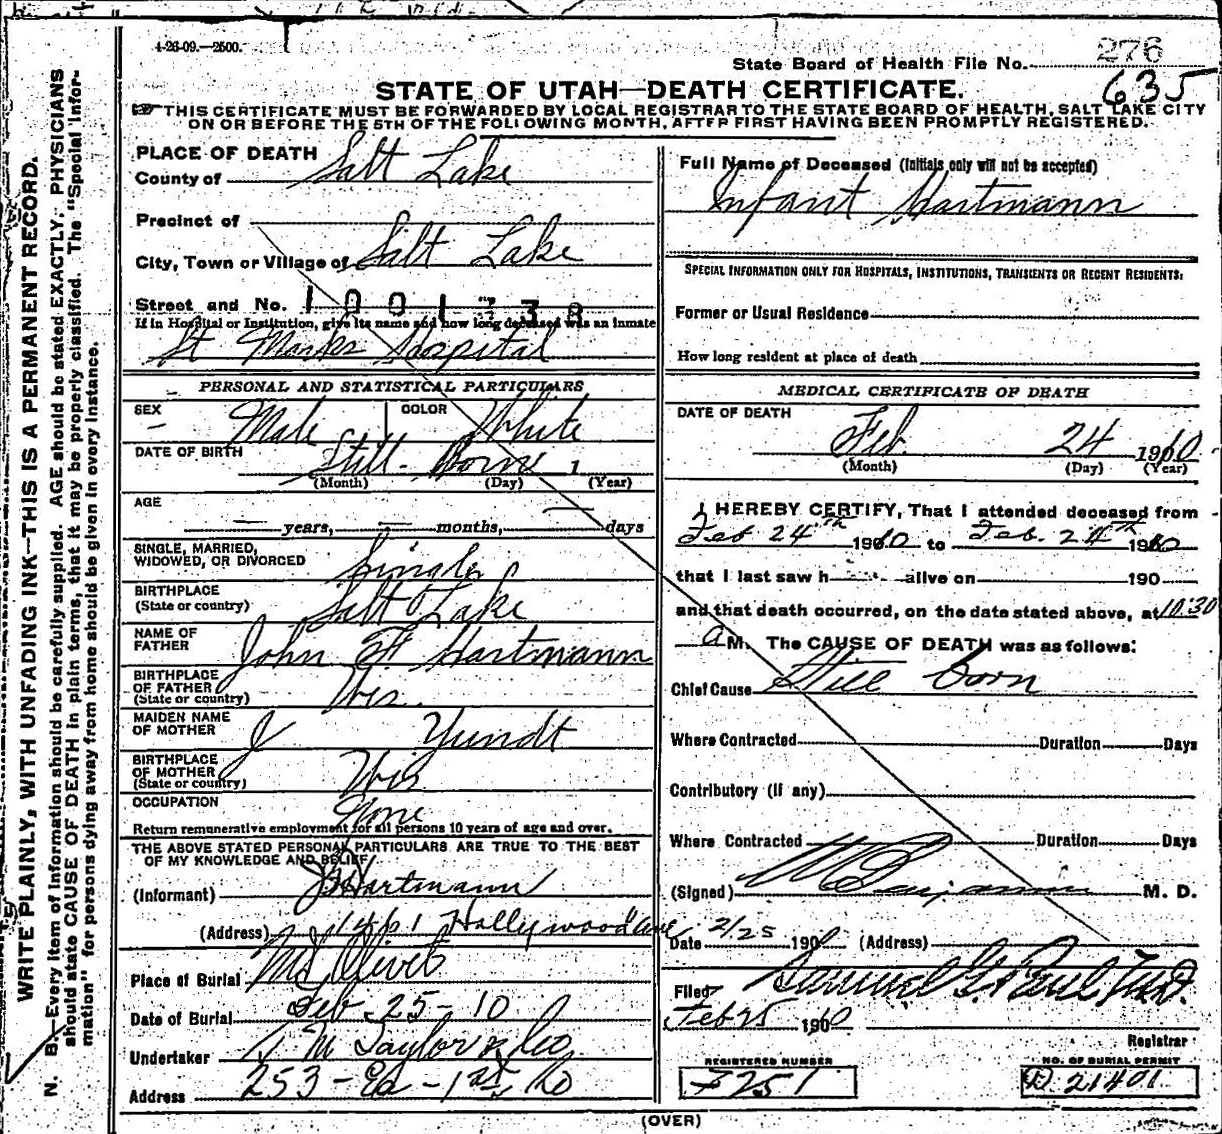 4-26-09.—2500.
276
State Board of Health File No.
635
STATE OF UTAH—DEATH CERTIFICATE.
THIS CERTIFICATE MUST BE FORWARDED BY LOCAL REGISTRAR TO THE STATE BOARD OF HEALTH, SALT LAKE CITY
ON OR BEFORE THE 5TH OF THE FOLLOWING MONTH, AFTER FIRST HAVING BEEN PROMPTLY REGISTERED.
WRITE PLAINLY, WITH UNFADING INK—THIS IS A PERMANENT RECORD.
N. B.—Every item of information should be carefully supplied. AGE should be stated EXACTLY. PHYSICIANS
should state CAUSE OF DEATH in plain terms, that it may be properly classified. The "Special Infor-
mation" for persons dying away from home should be given in every instance.
PLACE OF DEATH
County of Salt Lake
Precinct of
City, Town or Village of Salt Lake
Street and No. 1001
If in Hospital or Institution, give its name and how long deceased was an inmate
St Marks Hospital
PERSONAL AND STATISTICAL PARTICULARS
SEX Male COLOR White
DATE OF BIRTH Still-Born 1
(Month) (Day) (Year)
AGE
— years, — months, — days
SINGLE, MARRIED,
WIDOWED, OR DIVORCED Single
BIRTHPLACE
(State or country) Salt Lake
NAME OF
FATHER John F Hartmann
BIRTHPLACE
OF FATHER
(State or country) Wis.
MAIDEN NAME
OF MOTHER J Yundt
BIRTHPLACE
OF MOTHER
(State or country) Wis
OCCUPATION None
Return remunerative employment for all persons 10 years of age and over.
THE ABOVE STATED PERSONAL PARTICULARS ARE TRUE TO THE BEST
OF MY KNOWLEDGE AND BELIEF
(Informant) J F Hartmann
(Address) Hollywood Ave
Place of Burial Mt Olivet
Date of Burial Feb-25-10
Undertaker S M Taylor & Co
Address 253 - Ea - 1st So
Full Name of Deceased (Initials only will not be accepted)
Infant Hartmann
SPECIAL INFORMATION ONLY FOR HOSPITALS, INSTITUTIONS, TRANSIENTS OR RECENT RESIDENTS:
Former or Usual Residence
How long resident at place of death
MEDICAL CERTIFICATE OF DEATH
DATE OF DEATH
Feb. 24 1910
(Month) (Day) (Year)
I HEREBY CERTIFY, That I attended deceased from
Feb 24th 1910 to Feb. 24th 1910
that I last saw h alive on 190
and that death occurred, on the date stated above, at 10:30
a M. The CAUSE OF DEATH was as follows:
Chief Cause Still born
Where Contracted Duration Days
Contributory (if any)
Where Contracted Duration Days
(Signed) M. D.
Date 2/25 190 (Address)
Filed Samuel G. Paul
Feb 25 1910
Registrar
REGISTERED NUMBER
F251
NO. OF BURIAL PERMIT
D. 21401
(OVER)